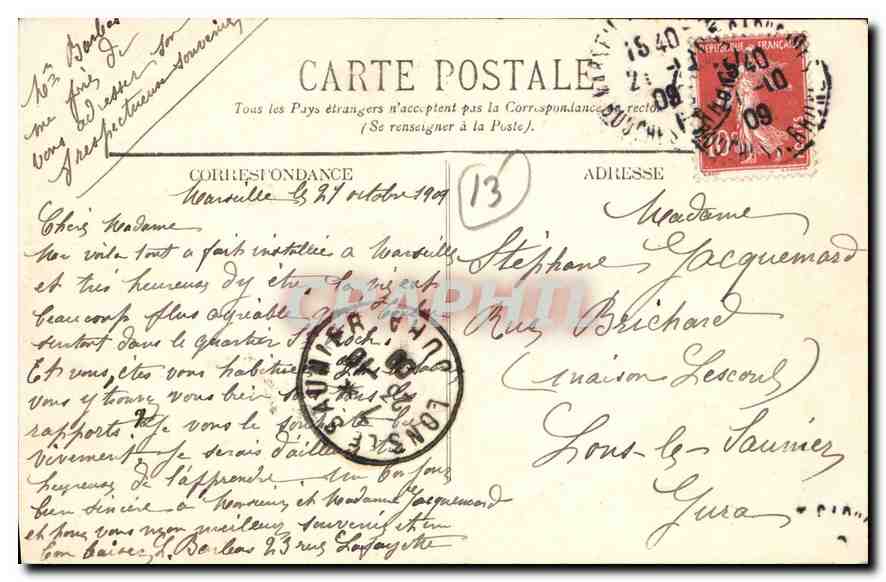 Mr Barbas
me prie de
vous adresser son
respectueux souvenir
CARTE POSTALE
Tous les Pays étrangers n'acceptent pas la Correspondance au recto
(Se renseigner à la Poste).
CORRESPONDANCE
ADRESSE
13
Marseille le 27 octobre 1909
Chère Madame
Me voila tout a fait installée a Marseille
et très heureuse d'y être la vie est
beaucoup plus agréable
surtout dans le quartier
Et vous, êtes vous habituée
vous y trouvez vous bien sous tous les
rapports? Je vous le souhaite
vivement. Je serais d'ailleurs
heureuse de l'apprendre. Un bonjour
bien sincère a Monsieur et Madame Jacquemard
et pour vous mon meilleur souvenir et un
bon baiser L. Barbas 23 rue Lafayette
Madame
Stéphane Jacquemard
Rue Brichard
(maison Lescoul)
Lons-le-Saunier
Jura
REPUBLIQUE FRANÇAISE
15 40
09
LONS LE SAUNIER JURA
CPAPHIL